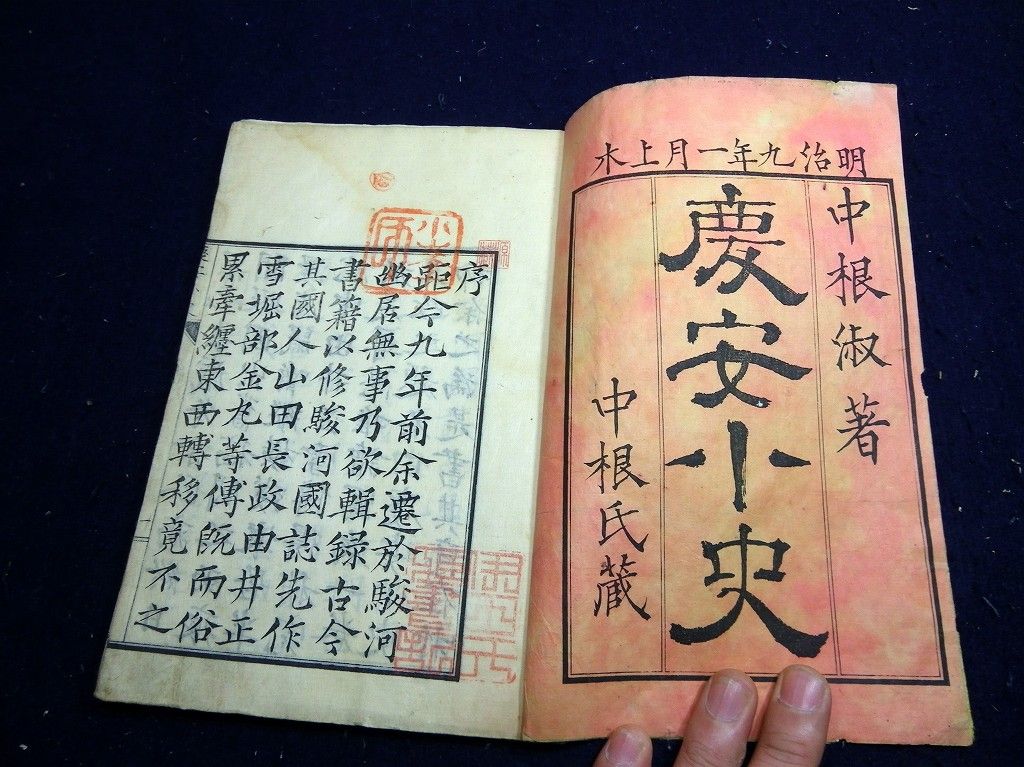 明治九年一月上木
中根淑著
慶安小史
中根氏藏
序
距今九年前余遷於駿河
幽居無事乃欲輯録古今
書籍以修駿河國誌先作
其國人山田長政由井正
雪堀部金丸等傳既而俗
累牽纏東西轉移竟不之